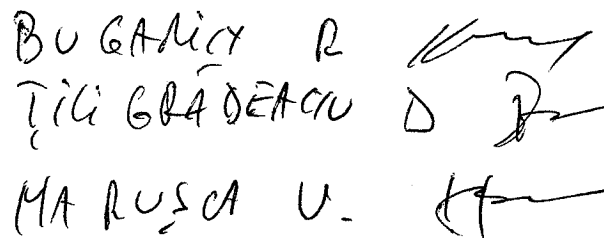 BUGARICI R
ȚILIGRĂDEACIU D
MARUȘCA V.